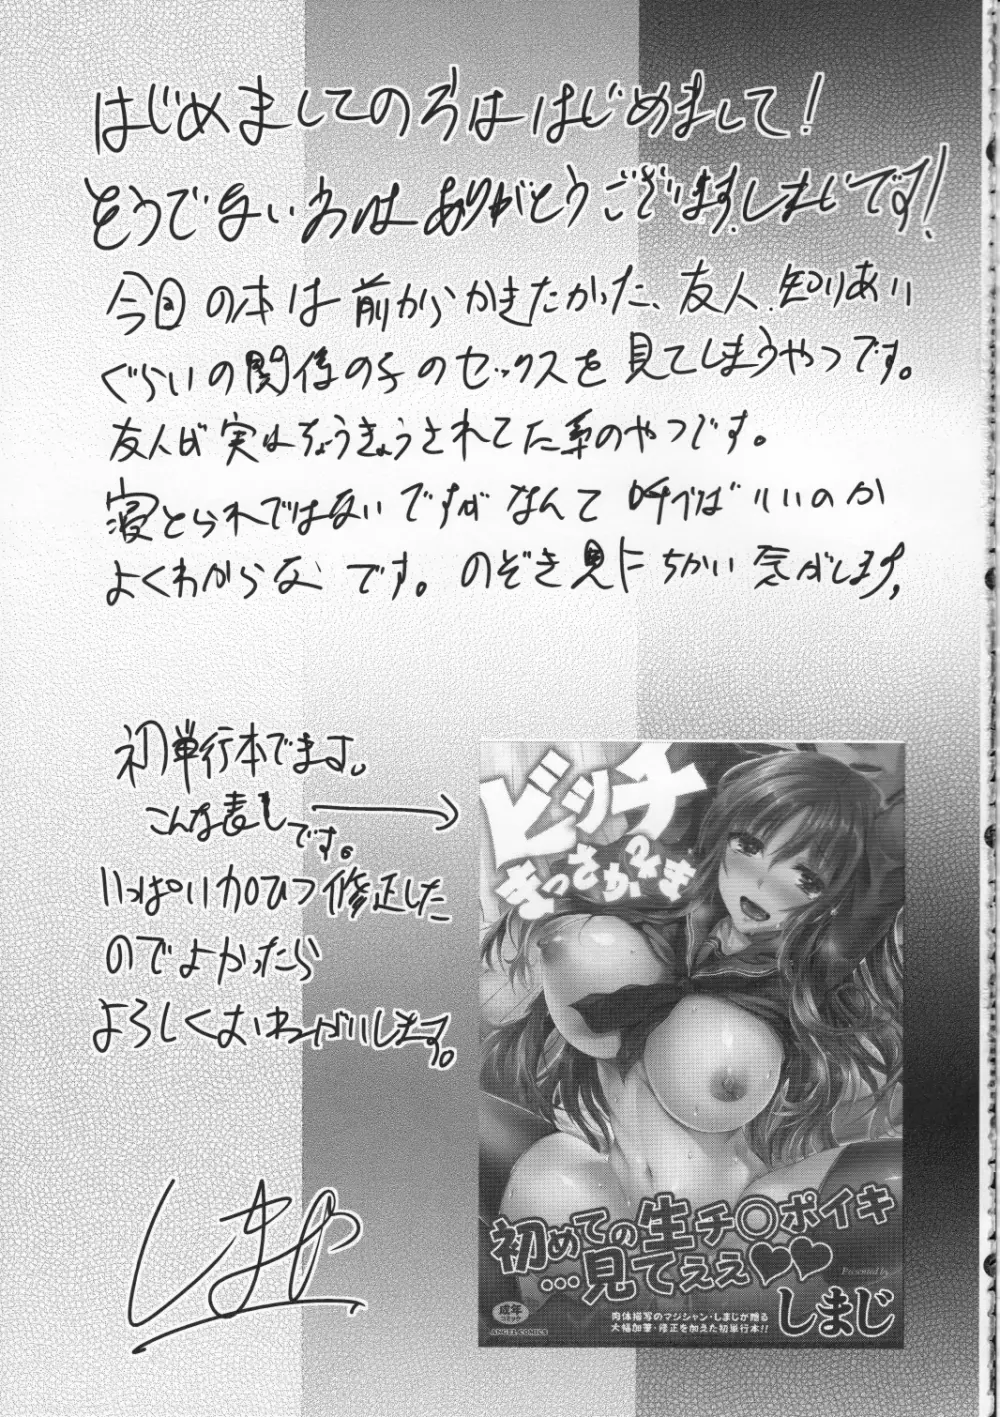 はじめましての方ははじめまして！
そうでない方はありがとうございます。しまじです！
今回の本は前からかきたかった、友人、知りあい
ぐらいの関係の子のセックスを見てしまうやつです。
友人が実はちょうきょうされてた系のやつです。
寝とられではないですがなんて呼べばいいのか
よくわからないです。のぞき見にちかい気がします。
初単行本でます。
こんな表しです。
いっぱい加ひつ修正した
のでよかったら
よろしくおねがいします。
しまじ
ビッチ
まっさかさま
初めての生チ○ポイキ
…見てぇぇ♥♥
Presented by
しまじ
成年
コミック
ANGEL COMICS
肉体描写のマジシャン・しまじが贈る
大幅加筆・修正を加えた初単行本!!